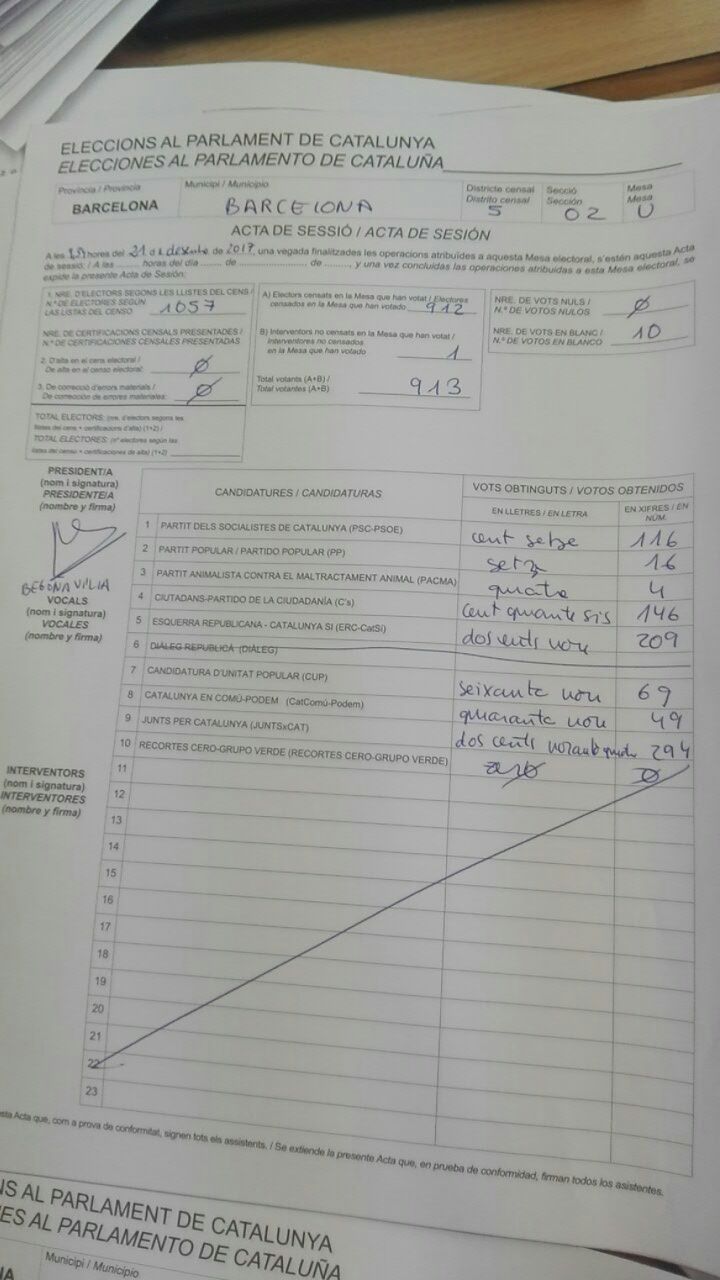 ELECCIONS AL PARLAMENT DE CATALUNYA
ELECCIONES AL PARLAMENTO DE CATALUÑA
Província / Provincia
BARCELONA
Municipi / Municipio
BARCELONA
Districte censal
Distrito censal
5
Secció
Sección
02
Mesa
Mesa
U
ACTA DE SESSIÓ / ACTA DE SESIÓN
A les hores del 21 de desembre de 2017, una vegada finalitzades les operacions atribuïdes a aquesta Mesa electoral, s'estén aquesta Acta
de sessió: / A las ........ horas del día ........ de ........ de ........, y una vez concluidas las operaciones atribuidas a esta Mesa electoral, se
expide la presente Acta de Sesión:
1. NRE. D'ELECTORS SEGONS LES LLISTES DEL CENS /
N.º DE ELECTORES SEGÚN
LAS LISTAS DEL CENSO 1057
NRE. DE CERTIFICACIONS CENSALS PRESENTADES /
N.º DE CERTIFICACIONES CENSALES PRESENTADAS
2. D'alta en el cens electoral /
De alta en el censo electoral: Ø
3. De correcció d'errors materials /
De corrección de errores materiales: Ø
TOTAL ELECTORS: (nre. d'electors segons les
llistes del cens + certificacions d'alta) (1+2) /
TOTAL ELECTORES: (nº electores según las
listas del censo + certificaciones de alta) (1+2)
A) Electors censats en la Mesa que han votat / Electores
censados en la Mesa que han votado 912
B) Interventors no censats en la Mesa que han votat /
Interventores no censados
en la Mesa que han votado 1
Total votants (A+B) /
Total votantes (A+B) 913
NRE. DE VOTS NULS /
N.º DE VOTOS NULOS Ø
NRE. DE VOTS EN BLANC /
N.º DE VOTOS EN BLANCO 10
PRESIDENT/A
(nom i signatura)
PRESIDENTE/A
(nombre y firma)
BEGONA VILIA
VOCALS
(nom i signatura)
VOCALES
(nombre y firma)
INTERVENTORS
(nom i signatura)
INTERVENTORES
(nombre y firma)
CANDIDATURES / CANDIDATURAS
VOTS OBTINGUTS / VOTOS OBTENIDOS
EN LLETRES / EN LETRA
EN XIFRES / EN
NÚM.
1 PARTIT DELS SOCIALISTES DE CATALUNYA (PSC-PSOE) cent setze 116
2 PARTIT POPULAR / PARTIDO POPULAR (PP) setze 16
3 PARTIT ANIMALISTA CONTRA EL MALTRACTAMENT ANIMAL (PACMA) quatre 4
4 CIUTADANS-PARTIDO DE LA CIUDADANÍA (C's) cent quanta sis 146
5 ESQUERRA REPUBLICANA - CATALUNYA SÍ (ERC-CatSí) dos cents nou 209
6 DIÀLEG REPUBLICÀ (DIÀLEG)
7 CANDIDATURA D'UNITAT POPULAR (CUP) seixanta nou 69
8 CATALUNYA EN COMÚ-PODEM (CatComú-Podem) quaranta nou 49
9 JUNTS PER CATALUNYA (JUNTSxCAT) dos cents 294
10 RECORTES CERO-GRUPO VERDE (RECORTES CERO-GRUPO VERDE) zero Ø
11
12
13
14
15
16
17
18
19
20
21
22
23
esta Acta que, com a prova de conformitat, signen tots els assistents. / Se extiende la presente Acta que, en prueba de conformidad, firman todos los asistentes.
NS AL PARLAMENT DE CATALUNYA
ES AL PARLAMENTO DE CATALUÑA
Municipi / Municipio